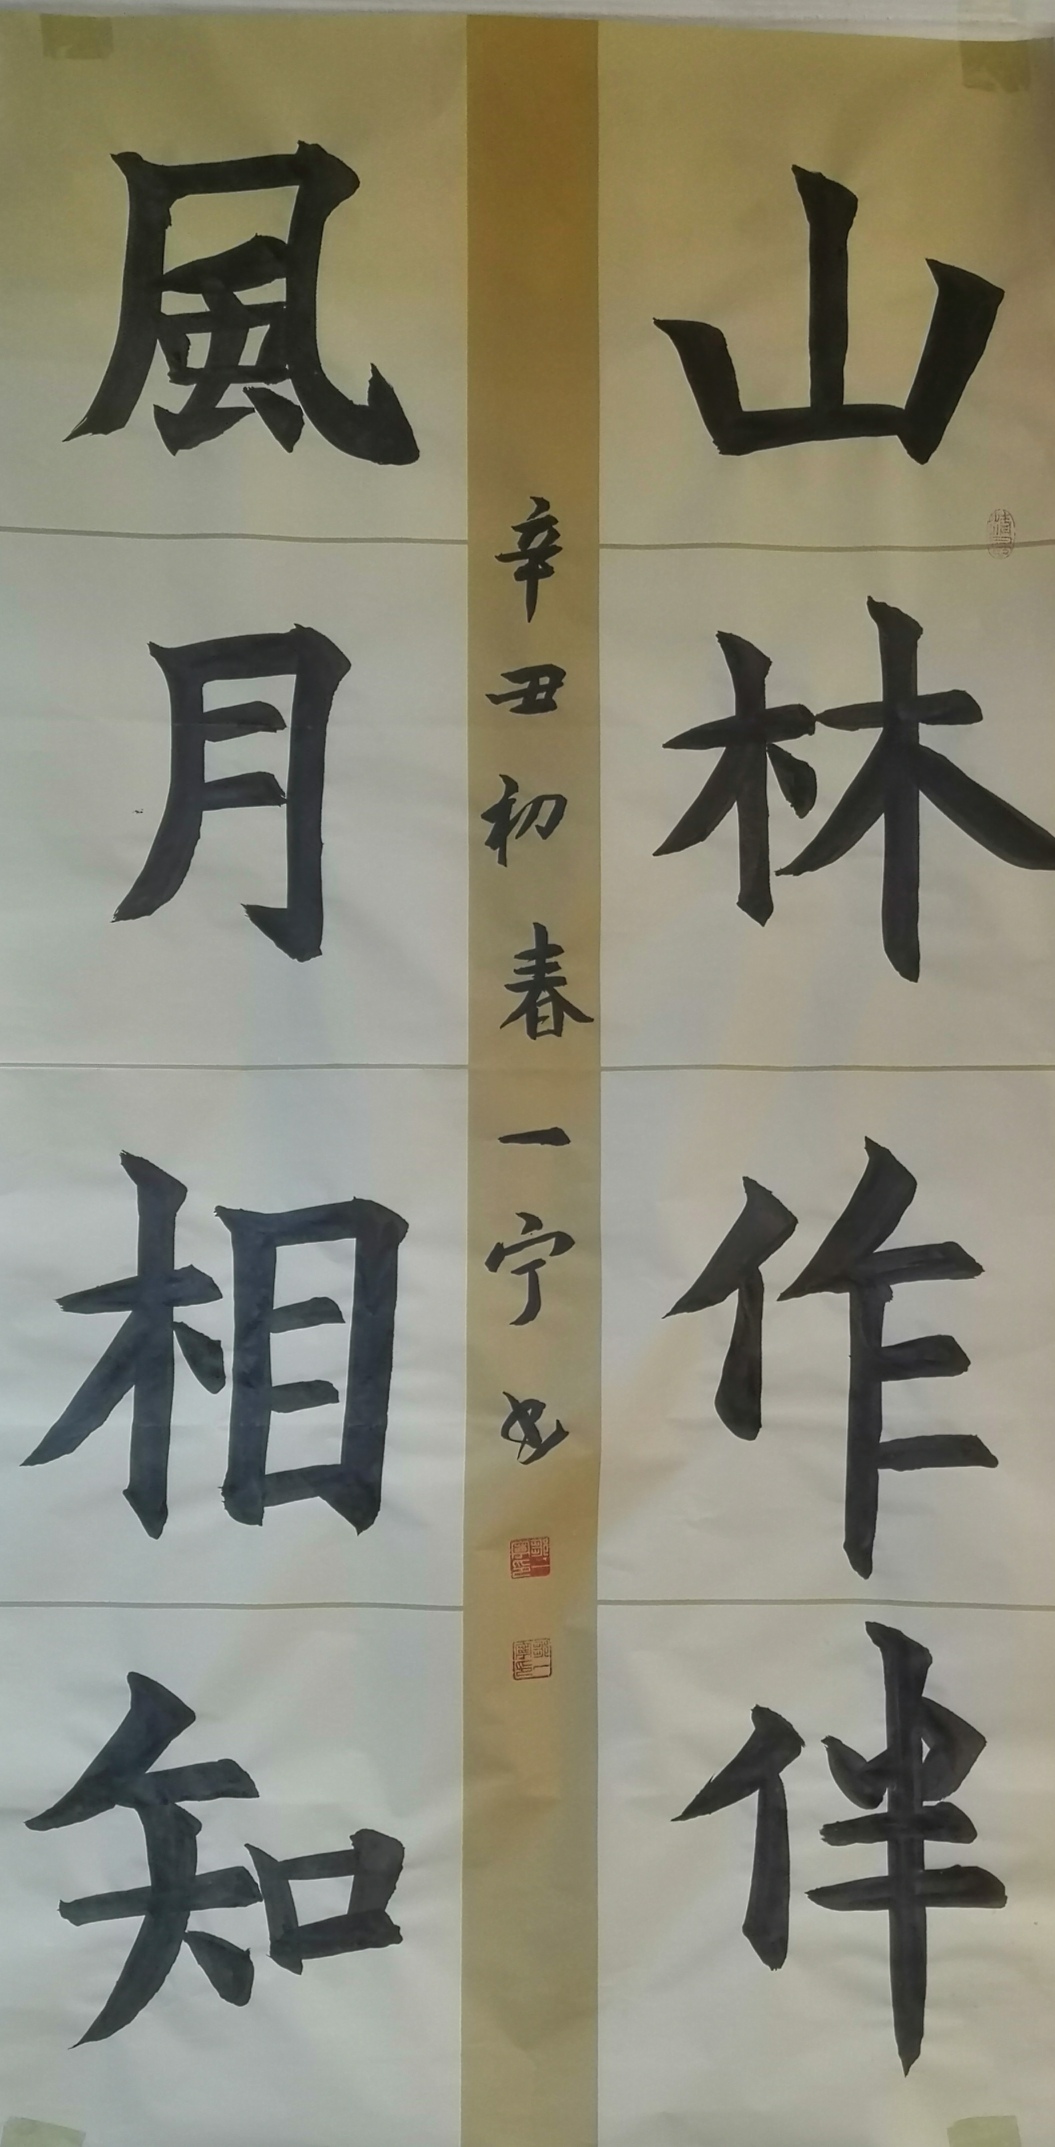 山林作伴
風月相知
辛丑初春一宁书